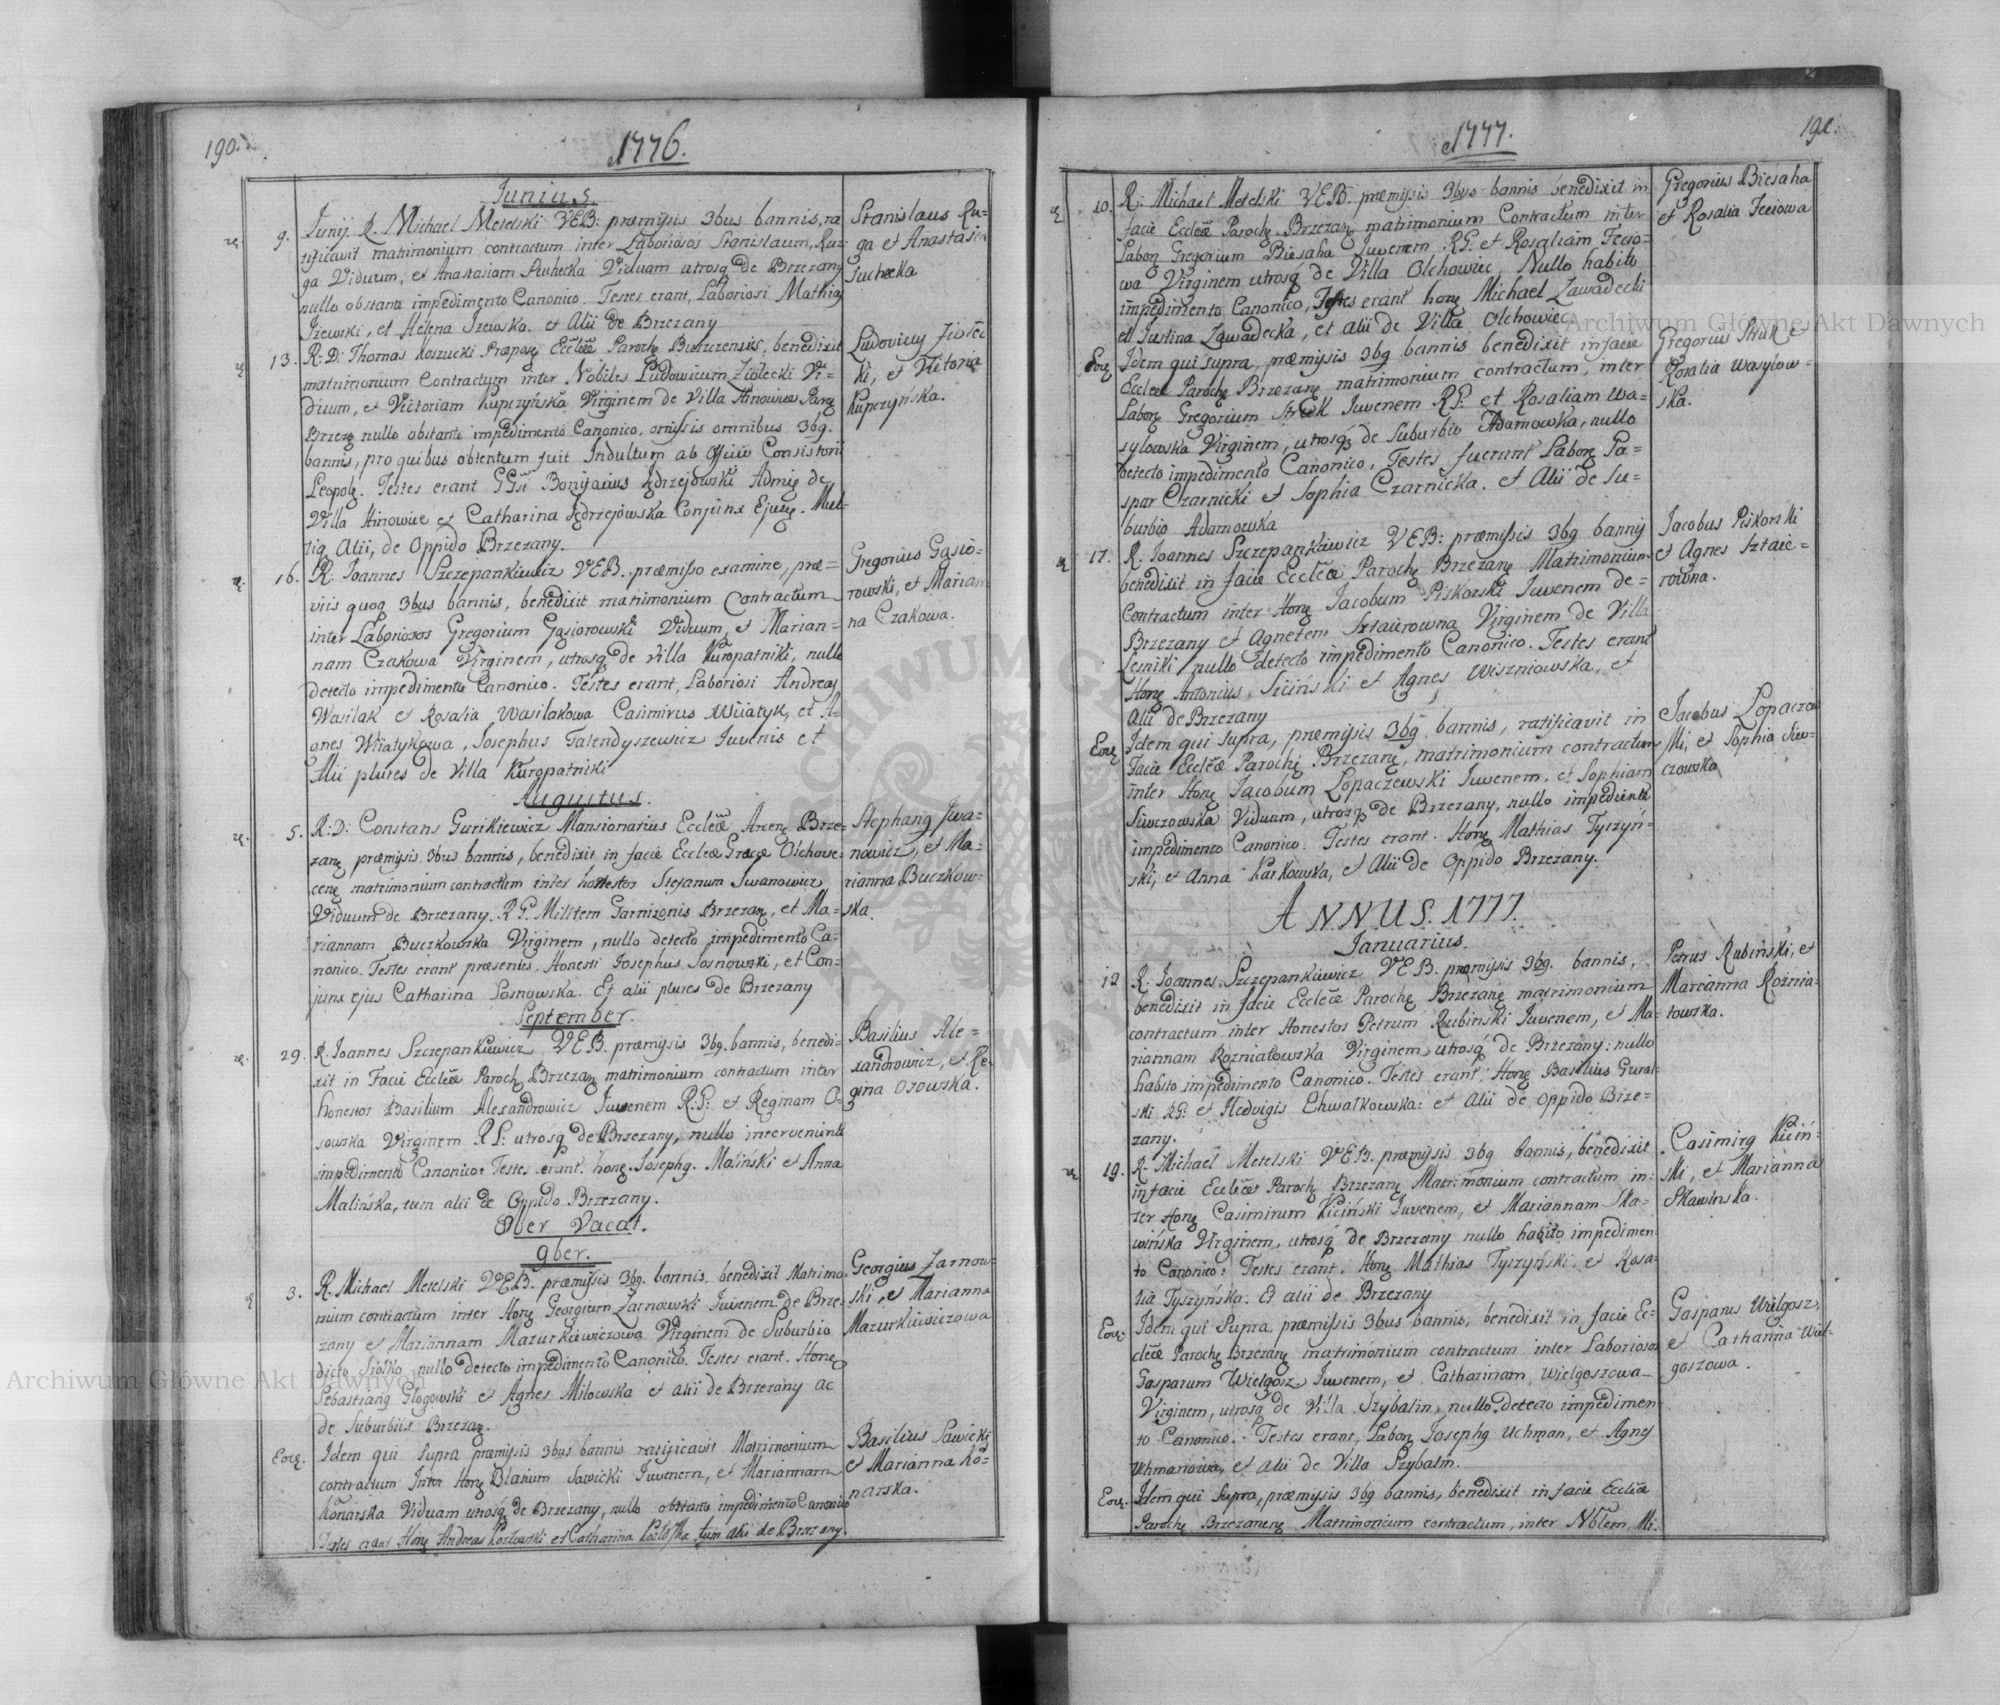 190.
1776.
Junius.
9. Junij. R. Michael Metelski VEB: præmissis 3bus bannis, ra
tificavit matrimonium contractum inter Laboriosos Stanislaum, Ru-
ga Viduum, et Anastasiam Suchecka Viduam utrosq de Brzezany
nullo obstante impedimento Canonico. Testes erant, Laboriosi Mathia
Izewski, et Helena Izewska. et Alii de Brzezany
Stanislaus Ru-
ga et Anastasia
Suchecka
13. R: D: Thomas Koszucki Præpos Eccłæ Paroch Buszczensis, benedixit
matrimonium Contractum inter Nobiles Ludovicum Ziołecki Vi-
duum, et Victoriam Kupczyńska Virginem de Villa Hinowice Paro
Brzez nullo obstante impedimento Canonico, omissis omnibus 3bg.
bannis, pro quibus obtentum fuit Indultum ab Officio Consistorii
Leopol. Testes erant GGsi Bonifacius Jędrzejowski Admin de
Villa Hinowice et Catharina Jędrzejowska Conjunx Ejus. Mul-
tiq Alii, de Oppido Brzezany.
Ludovicus Ziołec
ki, et Victoria
Kupczyńska.
16. R. Joannes Szczepankiewicz VEB. præmisso examine, præ-
viis quoq 3bus bannis, benedixit matrimonium Contractum
inter Laboriosos Gregorium Gąsiorowski Viduum, et Marian-
nam Czakowa Virginem, utrosq de Villa Kuropatniki, nullo
detecto impedimento Canonico. Testes erant, Laboriosi Andreas
Wasilak et Rosalia Wasilakowa Casimirus Wiiatyk, et A-
gnes Wiatykowa, Josephus Talendyszewicz Juvenis et
Alii plures de Villa Kuropatniki
Gregorius Gąsio-
rowski, et Marian
na Czakowa.
Augustus.
5. R: D: Constans Gurikiewicz Mansionarius Eccłæ Arcen Brze-
zanę præmissis 3bus bannis, benedixit in facie Eccłæ Græcæ Olchowe-
cenę matrimonium contractum inter honestos Stefanum Iwanowicz
Viduum de Brzezany. R.G. Militem Garnizonis Brzezan, et Ma-
riannam Buczkowska Virginem, nullo detecto impedimento Ca-
nonico. Testes erant præsentes, Honesti Josephus Sosnowski, et Con-
junx ejus Catharina Sosnowska. Et alii plures de Brzezany
Stephang Iwa-
nowicz, et Ma-
rianna Buczkow-
ska.
September.
29. R. Joannes Szczepankiewicz VEB. præmissis 3bg. bannis, benedi-
xit in Facie Eccłæ Paroch Brzezan matrimonium contractum inter
honestos Basilium Alexandrowicz Juvenem R.G: et Reginam O-
sowska Virginem R.L: utrosq de Brzezany, nullo interveniente
impedimento Canonico. Testes erant. honę. Josephg. Maliński et Anna
Malińska, tum alii de Oppido Brzezany.
Basilius Ale-
xandrowicz, et Re-
gina Osowska.
8ber Vacat.
9ber.
3. R. Michael Metelski VEB. præmissis 3bg. bannis benedixit Matrimo-
nium contractum inter Honę Georgium Żarnowski Juvenem de Brze-
zany et Mariannam Mazurkiewiczowa Virginem de Suburbio
dicto Siołko nullo detecto impedimento Canonico. Testes erant. Honę
Sebastiang Głogowski et Agnes Milowska et alii de Brzezany ac
de Suburbiis Brzezan.
Georgius Żarnow-
ski, et Marianna
Mazurkiewiczowa
Eoę. Idem qui supra præmissis 3bus bannis ratificavit Matrimonium
contractum Inter Honę Blasium Sawicki Juvenem, et Mariannam
Konarska Viduam utrosq de Brzezany, nullo obstante impedimento Canonico
Testes erant Honę Andreas Kozłowski et Catharina Kozłowska tum alii de Brzezany.
Basilius Sawicki
et Marianna Ko-
narska.
1777.
191.
10. R: Michael Metelski VEB. præmissis 3bus bannis benedixit in
facie Eccłæ Paroch Brzezan matrimonium Contractum inter
Labon Gregorium Biesaha Juvenem R.G: et Rosaliam Fecio-
wa Virginem utrosq de Villa Olchowiec, Nullo habito
impedimento Canonico, Testes erant honę Michael Zawadecki
ett Justina Zawadecka, et alii de Villa Olchowiec
Gregorius Biesaha
et Rosalia Feciowa
Eoę Idem qui supra, præmissis 3bg bannis benedixit in facie
Eccleæ Paroch Brzezanę matrimonium contractum, inter
Labonę Gregorium Struk Juvenem R.G: et Rosaliam Wa-
sylowska Virginem, utrosq de Suburbio Adamowka, nullo
detecto impedimento Canonico, Testes fuerunt Labonę Ga-
spar Czarnicki et Sophia Czarnicka. et Alii de Su-
burbio Adamowska
Gregorius Struk et
Rosalia Wasylow-
ska.
17. R. Joannes Szczepankiewicz VEB: præmissis 3bg bannis
benedixit in facie Eccłæ Paroch Brzezanę Matrimonium
Contractum inter Honę Jacobum Piskorski Juvenem de
Brzezany et Agnetem Sztaierowna Virginem de Villa
Leśniki nullo detecto impedimento Canonico. Testes erant
Honę Antonius Siciński et Agnes Wiszniowska, et
Alii de Brzezany
Jacobus Piskorski
et Agnes Sztaie-
rowna.
Eoę Idem qui supra, præmissis 3bg bannis, ratificavit in
Facie Eccłæ Paroch Brzezanę, matrimonium contractum
inter Honę Jacobum Lopaczewski Juvenem, et Sophiam
Siwczowska Viduam, utrosq de Brzezany, nullo impediente
impedimento Canonico. Testes erant. Honę Mathias Tyszyń-
ski, et Anna Karkowska, et Alii de Oppido Brzezany.
Jacobus Lopaczew
ski, et Sophia Siw-
czowska
ANNUS. 1777.
Januarius.
12 R. Joannes Szczepankiewicz VEB. præmissis 3bg. bannis,
benedixit in facie Eccłæ Paroch Brzezanę matrimonium
contractum inter Honestos Petrum Rubinski Juvenem, et Ma-
riannam Rozniatowska Virginem utrosq de Brzezany: nullo
habito impedimento Canonico. Testes erant, Honę Basilius Gural-
ski R.G: et Hedvigis Chwałkowska: et Alii de Oppido Brze-
zany.
Petrus Rubiński, et
Marianna Roznia-
towska.
19. R. Michael Metelski VEB. præmissis 3bg bannis, benedixit
in facie Eccłæ Paroch Brzezanę Matrimonium contractum in-
ter Honę Casimirum Kiciński Juvenem, et Mariannam Ska-
wińska Virginem, utrosq de Brzezany nullo habito impedimen
to Canonico: Testes erant, Honę Mathias Tyszyński et Rosa-
lia Tyszyńska. Et alii de Brzezany
Casimirg Kiciń-
ski, et Marianna
Skawinska.
Eoę. Idem qui Supra, præmissis 3bus bannis, benedixit in facie Ec-
clæ Paroch Brzezanę matrimonium contractum inter Laboriosos
Gasparum Wielgosz Juvenem, et Catharinam Wielgoszowa
Virginem, utrosq de Villa Szybalin, nullo detecto impedimen
to Canonico. Testes erant, Labonę Josephg Uchman, et Agnes
Uchmanowa, et Alii de Villa Szybalin.
Gasparus Wielgosz,
et Catharina Wiel-
goszowa.
Eoę. Idem qui Supra, præmissis 3bg bannis, benedixit in facie Eccłæ
Paroch Brzezanenę Matrimonium contractum, inter Nblem Mi.
Archiwum Główne Akt Dawnych
Archiwum Główne Akt Dawnych